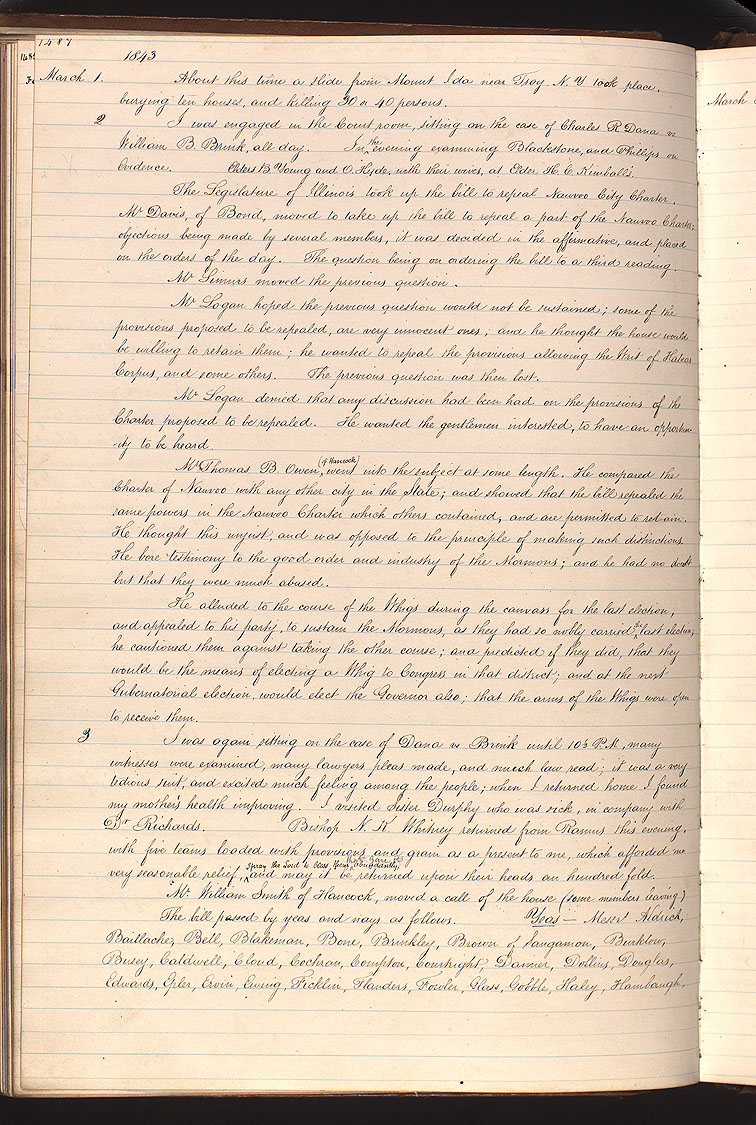 1487
1843
March 1. About this time a slide from Mount Ida near Troy. N. Y took place,
burying ten houses, and killing 30 or 40 persons.
2 I was engaged in the Court room, sitting on the case of Charles R. Dana vs
William B. Brink, all day. In the evening examining Blackstone, and Phillips on
Evidence. Elders B. Young and O. Hyde, with their wives, at Elder H. C. Kimball's.
The Legislature of Illinois took up the bill to repeal Nauvoo City Charter.
Mr Davis, of Bond, moved to take up the bill to repeal a part of the Nauvoo Charter;
objections being made by several members, it was decided in the affirmative, and placed
on the orders of the day. The question being on ordering the bill to a third reading.
Mr Simms moved the previous question.
Mr Logan hoped the previous question would not be sustained; some of the
provisions proposed to be repealed, are very innocent ones; and he thought the house would
be willing to retain them; he wanted to repeal the provisions allowing the Writ of Habeas
Corpus, and some others. The previous question was then lost.
Mr Logan denied that any discussion had been had on the provisions of the
Charter proposed to be repealed. He wanted the gentlemen interested, to have an opportun-
-ity to be heard.
Mr Thomas B. Owen, (of Hancock) went into the subject at some length. He compared the
Charter of Nauvoo with any other city in the State; and showed that the bill repealed the
same powers in the Nauvoo Charter which others contained, and are permitted to retain.
He thought this unjust, and was opposed to the principle of making such distinctions.
He bore testimony to the good order and industry of the Mormons; and he had no doubt
but that they were much abused.
He alluded to the course of the Whigs during the canvass for the last election,
and appealed to his party, to sustain the Mormons, as they had so nobly carried the last election;
he cautioned them against taking the other course; and predicted if they did, that they
would be the means of electing a Whig to Congress in that district; and at the next
Gubernatorial election, would elect the Governor also; that the arms of the Whigs were open
to receive them.
3 I was again sitting on the case of Dana vs Brink until 10½ P.M., many
witnesses were examined, many lawyers pleas made, and much law read; it was a very
tedious suit, and excited much feeling among the people; when I returned home I found
my mother's health improving. I visited Sister Durphy who was sick, in company with
Dr Richards. Bishop N. K Whitney returned from Ramus this evening,
with five teams loaded with provisions and grain as a present to me, which afforded me
very seasonable relief, I pray the Lord to bless them that gave it abundantly, and may it be returned upon their heads an hundred fold.
Mr. William Smith of Hancock, moved a call of the house (some members leaving)
The bill passed by yeas and nays as follows. Yeas — Messrs Aldrich,
Bailhache, Bell, Blakeman, Bone, Brinkley, Brown of Sangamon, Burklow,
Busey, Caldwell, Cloud, Cochran, Compton, Courtright, Danner, Dollins, Douglas,
Edwards, Epler, Ervin, Ewing, Ficklin, Flanders, Fowler, Glass, Gobble, Haley, Hambaugh,
March